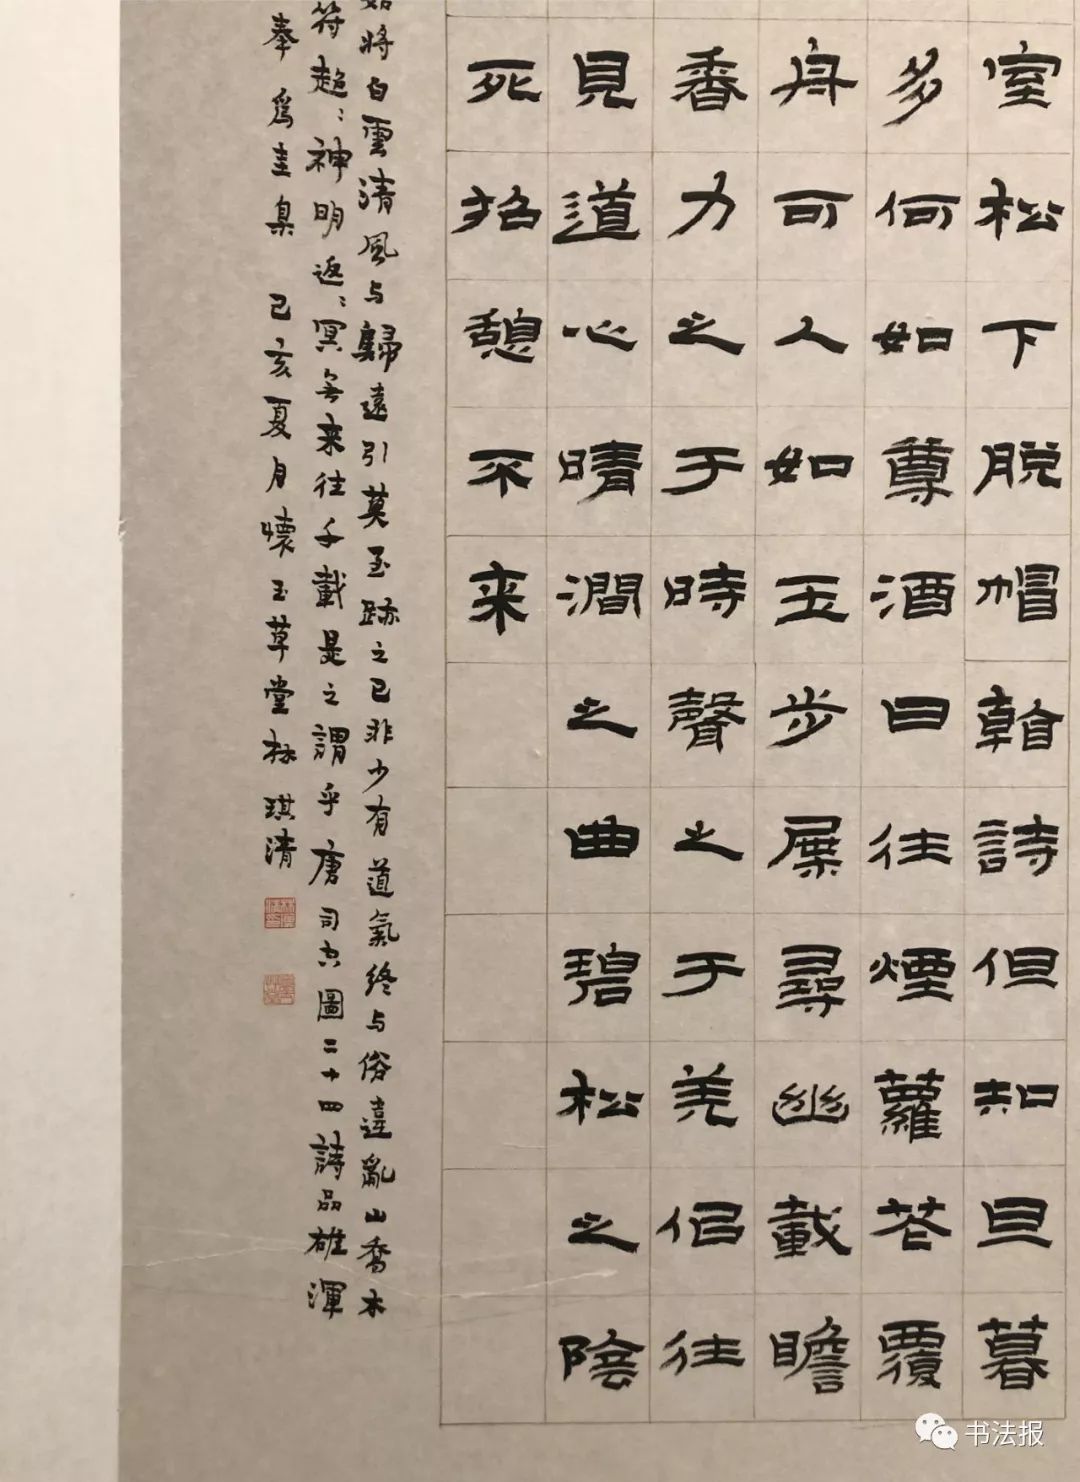 室松下脱帽看詩但知旦暮
多何如尊酒日往煙蘿花覆
舟可人如玉步屧尋幽載瞻
香力之于時聲之于羌倡往
見道心晴澗之曲碧松之陰
死招憩不来
將白雲清風与歸遠引莫至跡之已非少有道氣終与俗違亂山喬木
符超:神明返:冥無来往千載是之謂乎唐司空圖二十四詩品雄渾
奉爲圭臬 己亥夏月懷玉草堂林琪清
书法报